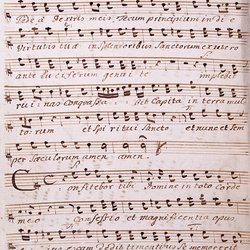 Sede a dextris meis. Tecum principium in di e
Virtutis tuæ in Splendoribus Sanctorum ex utero
ante Luciferum genui te implebit
rui: nas Conquassa bit Capita in terra mul
torum et Spiritui Sancto, et nunc et sem
per Sæculorum amen amen.
Confitebor tibi Domine in toto Corde
meo Confessio et magnificentia opus
escam dedit timentibus se memor